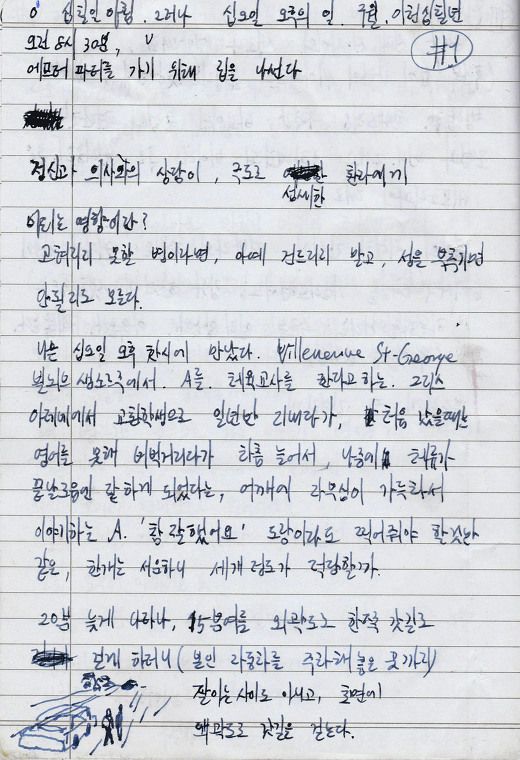 십칠일 아침. 그러나 십오일 오후의 일. 구월, 이천십칠년
#1
오전 8시 30분,
에프터 파티를 가기 위해 집을 나선다
정신과 의사와의 상담이, 극도로 환자에게
섬세한
미치는 영향이란?
고쳐내지 못할 병이라면, 아예 건드리지 말고, 섬을
안될지도 모른다.
나는 십오일 오후 한시에 만났다. Villeneuve St-George
빌뇌브 생조르쥬에서. A를. 체육교사를 한다고 하는. 그리스
아테네에서 교환학생으로 일년반 지내다가, 처음 갔을때는
영어를 못해 버벅거리다가 차츰 늘어서, 나중에 체류가
끝날즈음엔 잘하게 되었다는, 어깨에 자부심이 가득차서
이야기하는 A. '참 잘했어요' 도장이라도 찍어줘야 할것만
같은, 한개는 서운하니 세개정도가 적당할까.
20분 늦게 나타나, 15분여를 외곽도로 한적 갓길로
걷게 하더니 (본인 자동차를 주차해 놓은 곳까지)
잘아는사이도 아니고, 초면에
외곽도로 갓길을 걷는다.